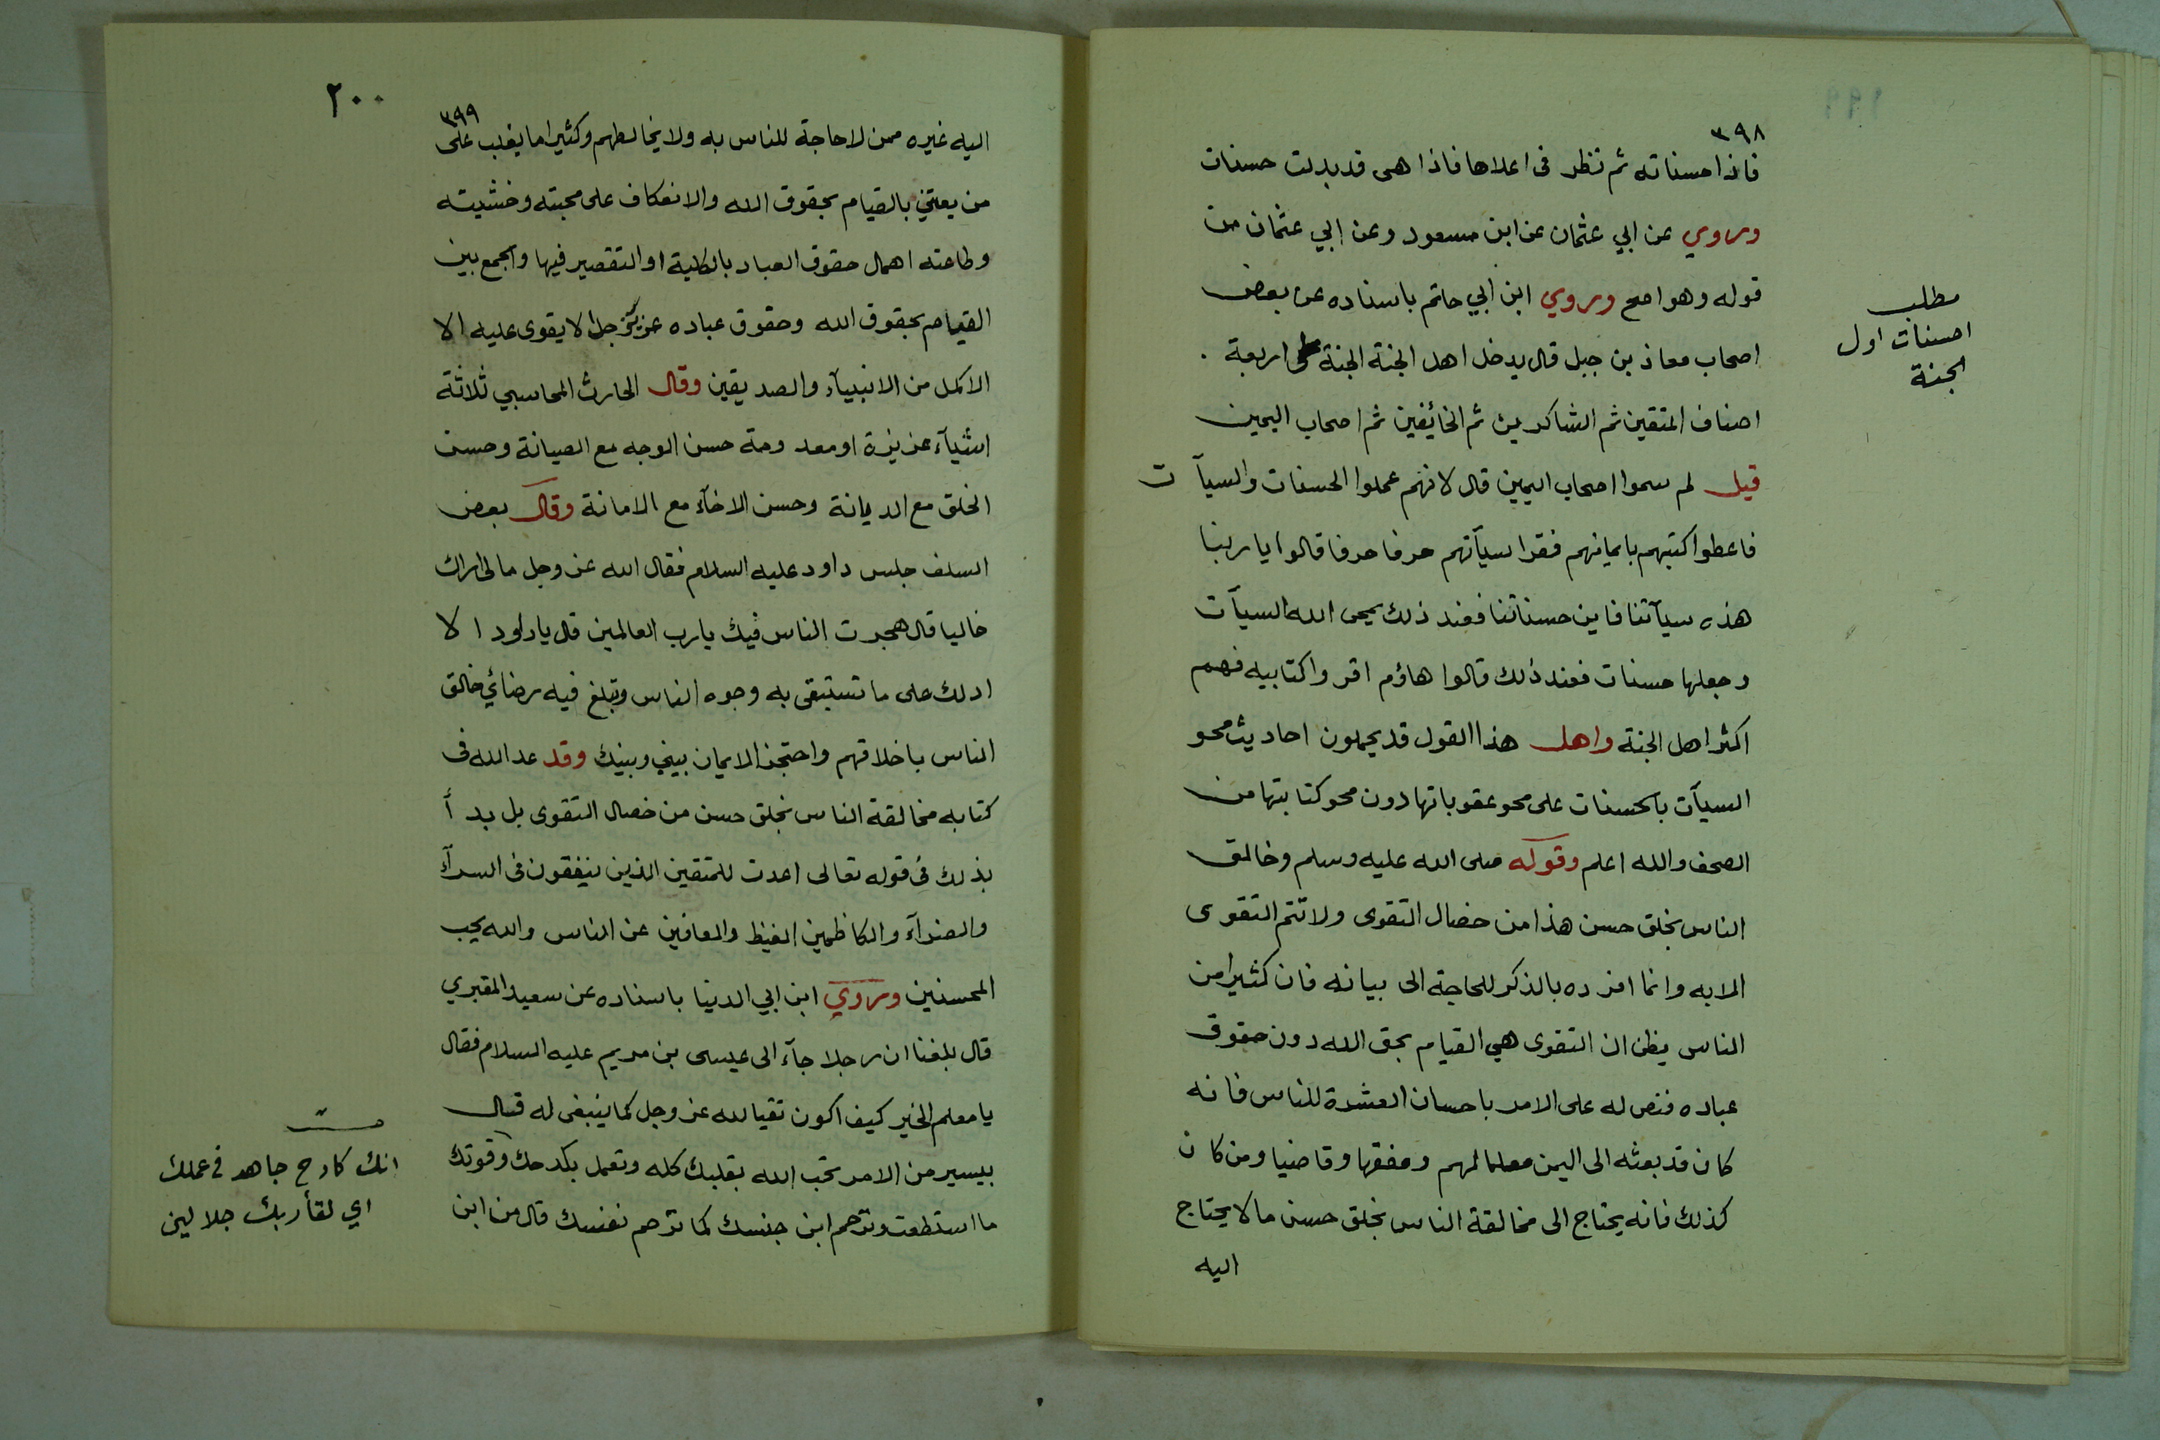 ٣٩٨
فاذا حسناته ثم تنظر فى اعلاها فاذا هى قد بدلت حسنات
وروي عن ابي عثمان عن ابن مسعود وعن ابي عثمان من
قوله وهو اصح وروي ابن ابي حاتم باسناده عن بعض
اصحاب معاذ بن جبل قال يدخل اهل الجنة الجنة على اربعة
اصناف المتقين ثم الشاكرين ثم الخائفين ثم اصحاب اليمين
قيل لم سموا اصحاب اليمين قال لانهم عملوا الحسنات والسيآت
فاعطوا كتبهم بايمانهم فقرا سيآتهم حرفا حرفا قالوا يا ربنا
هذه سيآتنا فاين حسناتنا فعند ذلك يمحى الله السيآت
وجعلها حسنات فعند ذلك قالوا هاؤم اقروا كتابيه فهم
اكثر اهل الجنة واهل هذا القول قد يحملون احاديث محو
السيآت بالحسنات على محو عقوباتها دون محو كتابتها من
الصحف والله اعلم وقوله صلى الله عليه وسلم وخالق
الناس بخلق حسن هذا من خصال التقوى ولا تتم التقوى
الا به وانما افرده بالذكر للحاجة الى بيانه فان كثيرا من
الناس يظن ان التقوى هي القيام بحق الله دون حقوق
عباده فنص له على الامر باحسان العشرة للناس فانه
كان قد بعثه الى اليمن معلما لهم ومفقها وقاضيا ومن كان
كذلك فانه يحتاج الى مخالقة الناس بخلق حسن ما لا يحتاج
اليه
مطلب
احسنات اول
الجنة
٢٠٠
٣٩٩
اليه غيره ممن لا حاجة للناس به ولا يخالطهم وكثيرا ما يغلب على
من يعتني بالقيام بحقوق الله والانعكاف على محبته وخشيته
وطاعته اهمال حقوق العباد بالكلية او التقصير فيها والجمع بين
القيام بحقوق الله وحقوق عباده عزيز جدا لا يقوى عليه الا
الاكمل من الانبيآء والصديقين وقال الحارث المحاسبي ثلاثة
اشيآء عزيزة او معدومة حسن الوجه مع الصيانة وحسن
الخلق مع الديانة وحسن الاخآء مع الامانة وقال بعض
السلف جلس داود عليه السلام فقال الله عز وجل مالى اراك
خاليا قال هجرت الناس فيك يا رب العالمين قال يا داود الا
ادلك على ما تستبقى به وجوه الناس وتبلغ فيه رضائي خالق
الناس باخلاقهم واحتجز الايمان بيني وبينك وقد عد الله فى
كتابه مخالقة الناس بخلق حسن من خصال التقوى بل بدأ
بذلك فى قوله تعالى اعدت للمتقين الذين ينفقون فى السرآء
والضرآء والكاظمين الغيظ والعافين عن الناس والله يحب
المحسنين وروي ابن ابي الدنيا باسناده عن سعيد المقبري
قال بلغنا ان رجلا جآء الى عيسى بن مريم عليه السلام فقال
يا معلم الخير كيف اكون تقيا لله عز وجل كما ينبغى له قال
بيسير من الامر تحب الله بقلبك كله وتعمل بكدحك وقوتك
ما استطعت وترحم ابن جنسك كما ترحم نفسك قال من ابن
انك كادح جاهد فى عملك
اي لقآ ربك جلالين